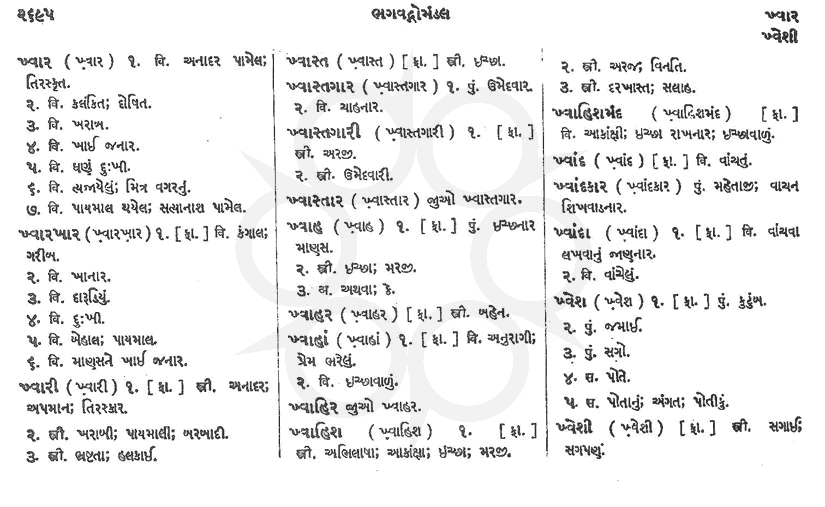 ૨૬૯૫
ભગવદ્ગોમંડલ
ખ્વાર
ખ્વેશી
ખ્વાર (ખ઼્વાર) ૧. વિ. અનાદર પામેલ;
તિરસ્કૃત.
૨. વિ. કલંકિત; દોષિત.
૩. વિ. ખરાબ.
૪. વિ. ખાઈ જનાર.
૫. વિ. ઘણું દુઃખી.
૬. વિ. ત્યજાયેલું; મિત્ર વગરનું.
૭. વિ. પાયમાલ થયેલ; સત્યાનાશ પામેલ.
ખ્વારખાર (ખ઼્વારખ઼ાર) ૧. [ ફા. ] વિ. કંગાલ;
ગરીબ.
૨. વિ. ખાનાર.
૩. વિ. દારૂડિયું.
૪. વિ. દુઃખી.
૫. વિ. બેહાલ; પાયમાલ.
૬. વિ. માણસને ખાઈ જનાર.
ખ્વારી (ખ઼્વારી) ૧. [ ફા. ] સ્ત્રી. અનાદર;
અપમાન; તિરસ્કાર.
૨. સ્ત્રી. ખરાબી; પાયમાલી; બરબાદી.
૩. સ્ત્રી. ભ્રષ્ટતા; હલકાઈ.
ખ્વાસ્ત (ખ઼્વાસ્ત) [ ફા. ] સ્ત્રી. ઇચ્છા.
ખ્વાસ્તગાર (ખ઼્વાસ્તગાર) ૧. પું. ઉમેદવાર.
૨. વિ. ચાહનાર.
ખ્વાસ્તગારી (ખ઼્વાસ્તગારી) ૧. [ ફા. ]
સ્ત્રી. અરજી.
૨. સ્ત્રી. ઉમેદવારી.
ખ્વાસ્તાર (ખ઼્વાસ્તાર) જુઓ ખ્વાસ્તગાર.
ખ્વાહ (ખ઼્વાહ) ૧. [ ફા. ] પું. ઇચ્છનાર
માણસ.
૨. સ્ત્રી. ઇચ્છા; મરજી.
૩. અ. અથવા; કે.
ખ્વાહર (ખ઼્વાહર) [ ફા. ] સ્ત્રી. બહેન.
ખ્વાહાં (ખ઼્વાહાં) ૧. [ ફા. ] વિ. અનુરાગી;
પ્રેમ ભરેલું.
૨. વિ. ઇચ્છાવાળું.
ખ્વાહિર જુઓ ખ્વાહર.
ખ્વાહિશ (ખ઼્વાહિશ) ૧. [ ફા. ]
સ્ત્રી. અભિલાષા; આકાંક્ષા; ઇચ્છા; મરજી.
૨. સ્ત્રી. અરજ; વિનતિ.
૩. સ્ત્રી. દરખાસ્ત; સલાહ.
ખ્વાહિશમંદ (ખ઼્વાહિશમંદ) [ ફા. ]
વિ. આકાંક્ષી; ઇચ્છા રાખનાર; ઇચ્છાવાળું.
ખ્વાંદ (ખ઼્વાંદ) [ ફા. ] વિ. વાંચતું.
ખ્વાંદકાર (ખ઼્વાંદકાર) પું. મહેતાજી; વાચન
શિખવાડનાર.
ખ્વાંદા (ખ઼્વાંદા) ૧. [ ફા. ] વિ. વાંચવા
લખવાનું જાણનાર.
૨. વિ. વાંચેલું.
ખ્વેશ (ખ઼્વેશ) ૧. [ ફા. ] પું. કુટુંબ.
૨. પું. જમાઈ.
૩. પું. સગો.
૪. સ. પોતે.
૫. સ. પોતાનું; અંગત; પોતીકું.
ખ્વેશી (ખ઼્વેશી) [ ફા. ] સ્ત્રી. સગાઈ;
સગપણું.